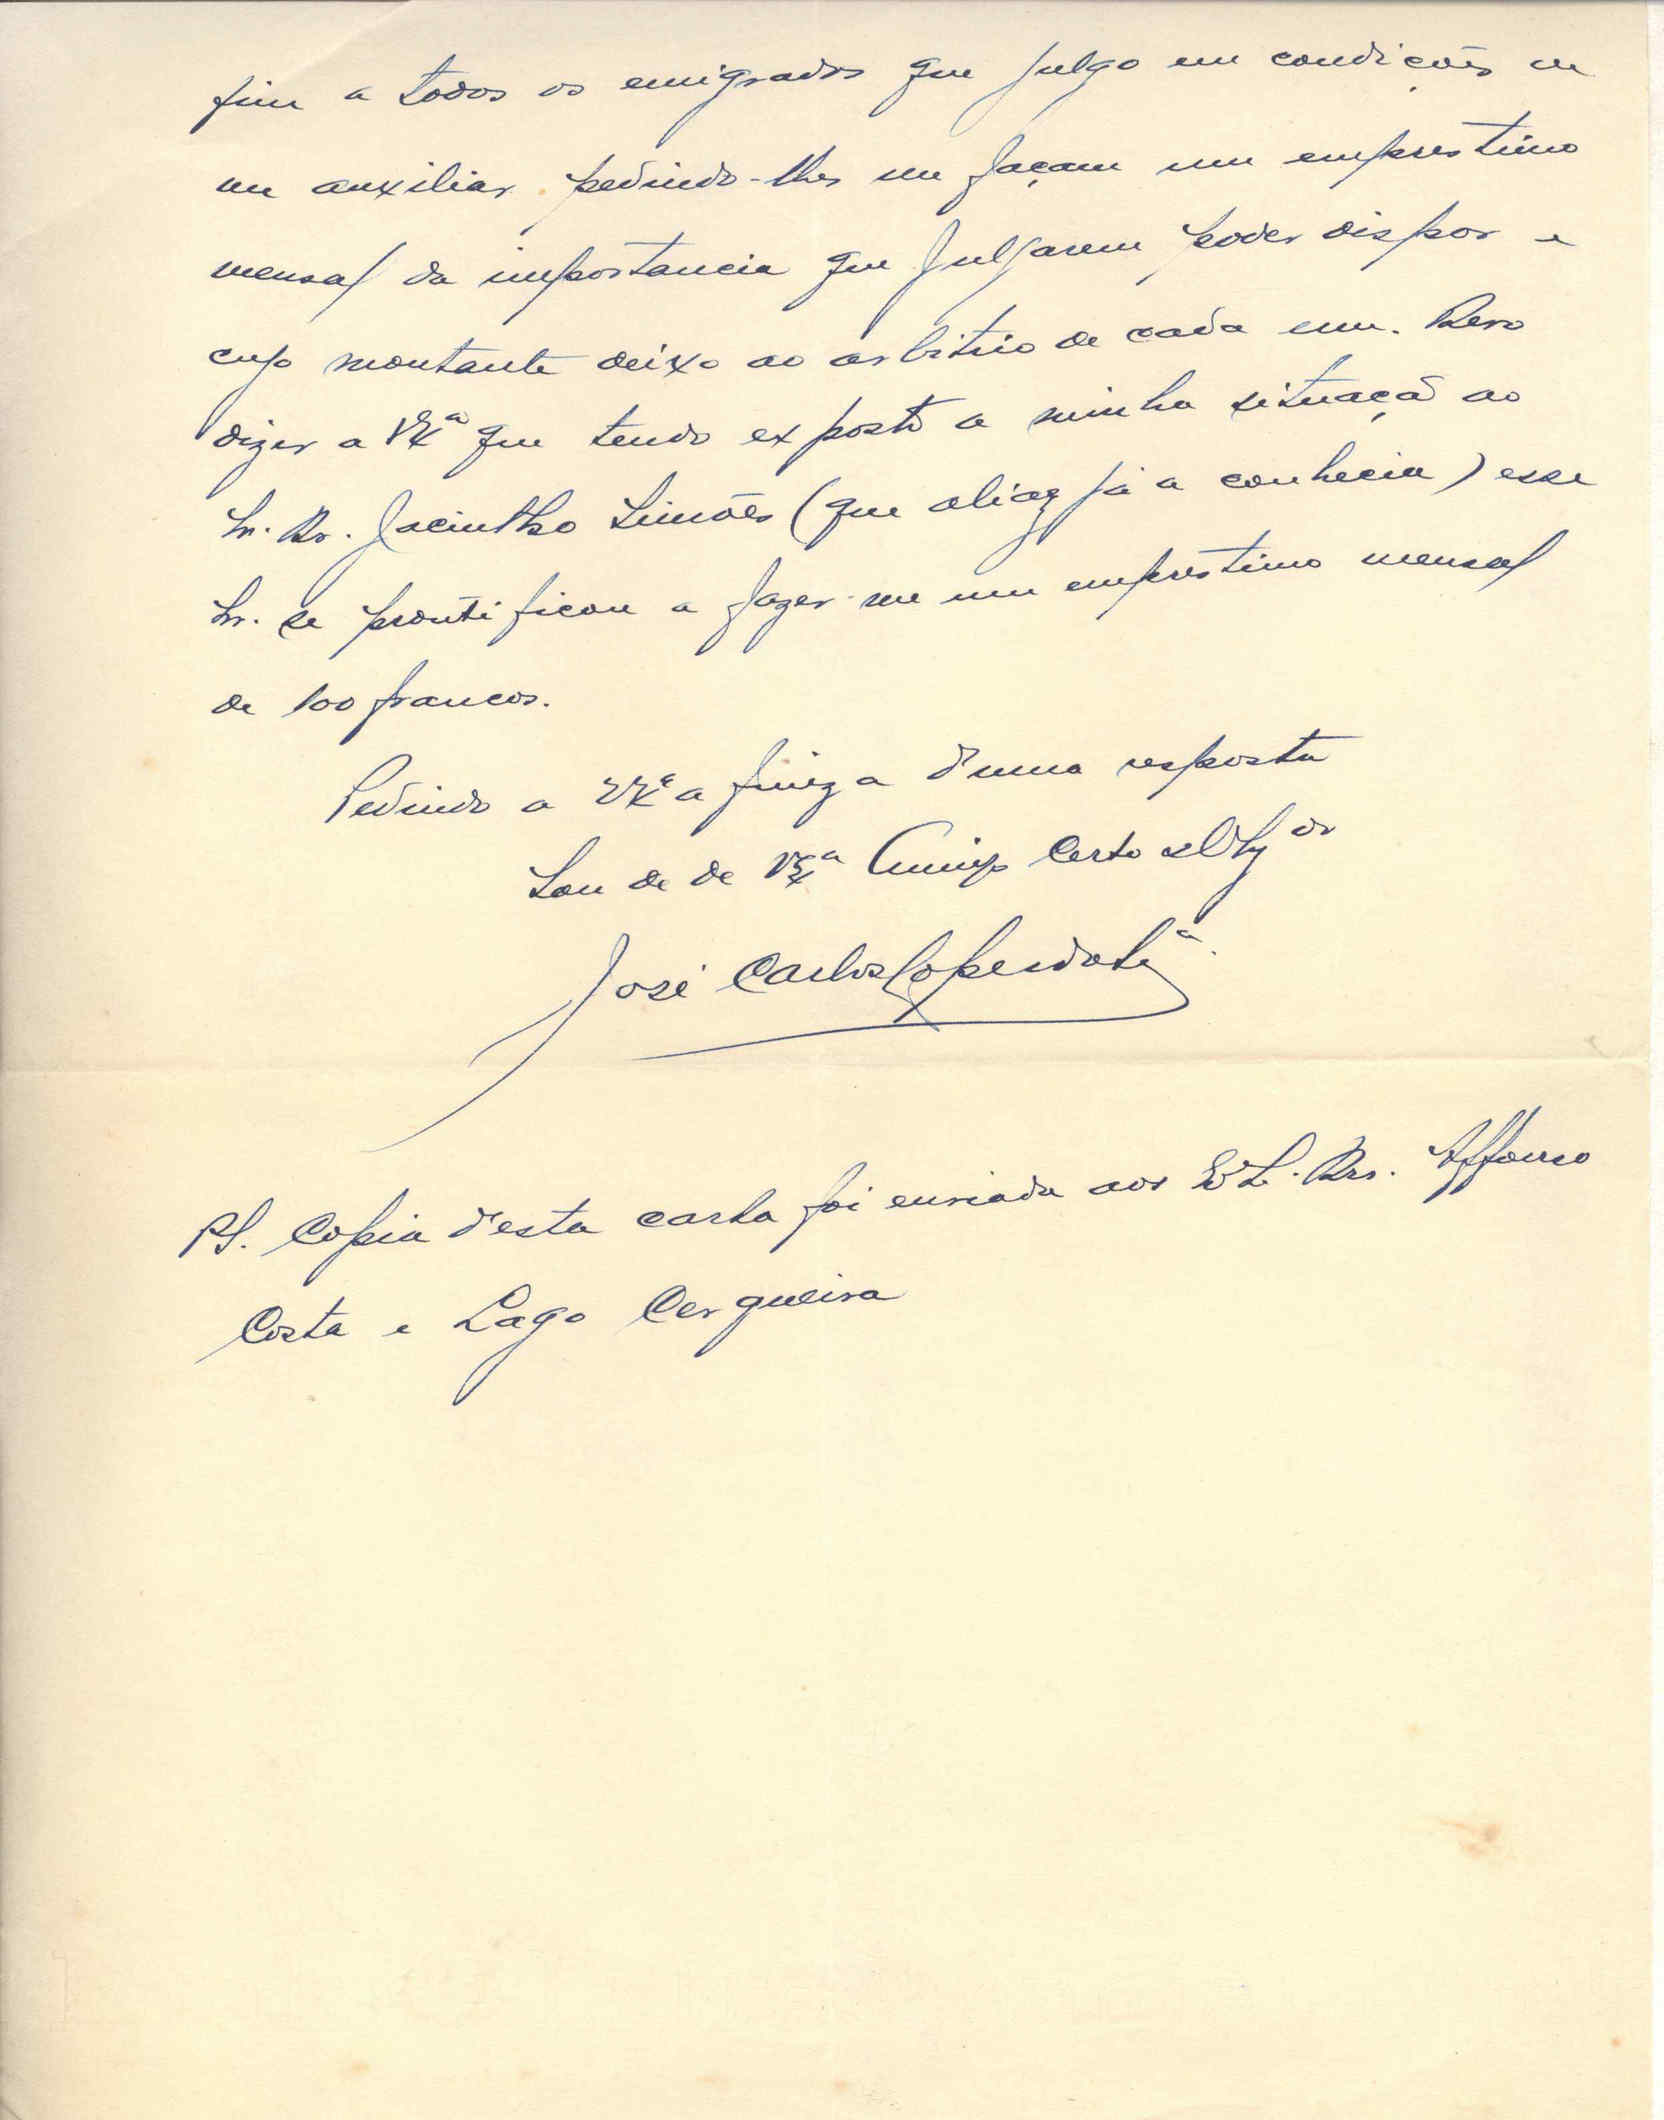 fim a todos os emigrados que julgo em condições de
me auxiliar pedindo-lhes me façam um emprestimo
mensal da importancia que julgarem poder dispor e
cujo montante deixo ao arbitrio de cada um. Devo
dizer a VExª que tendo exposto a minha situaçã ao
Sr. Dr. Jacintho Simões (que aliaz já a conhecia) esse
Sr. se prontificou a fazer-me um emprestimo mensal
de 100 francos.
Pedindo a VExª a fineza d'uma resposta
Sou de de VExª Amigo Certo e Obgdo
José Carlos
PS. Copia d'esta carta foi enviada aos Drs. Affonso
Costa e Lago Cerqueira